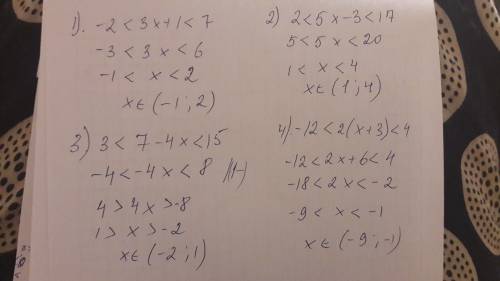 1). -2 < 3x+1 < 7
-3 < 3x < 6
-1 < x < 2
x∈ (-1; 2)
2) 2 < 5x-3 < 17
5 < 5x < 20
1 < x < 4
x∈ (1; 4)
3) 3 < 7-4x < 15
-4 < -4x < 8
4 > 4x > -8
1 > x > -2
x∈ (-2; 1)
4) -12 < 2(x+3) < 4
-12 < 2x+6 < 4
-18 < 2x < -2
-9 < x < -1
x∈ (-9; -1)